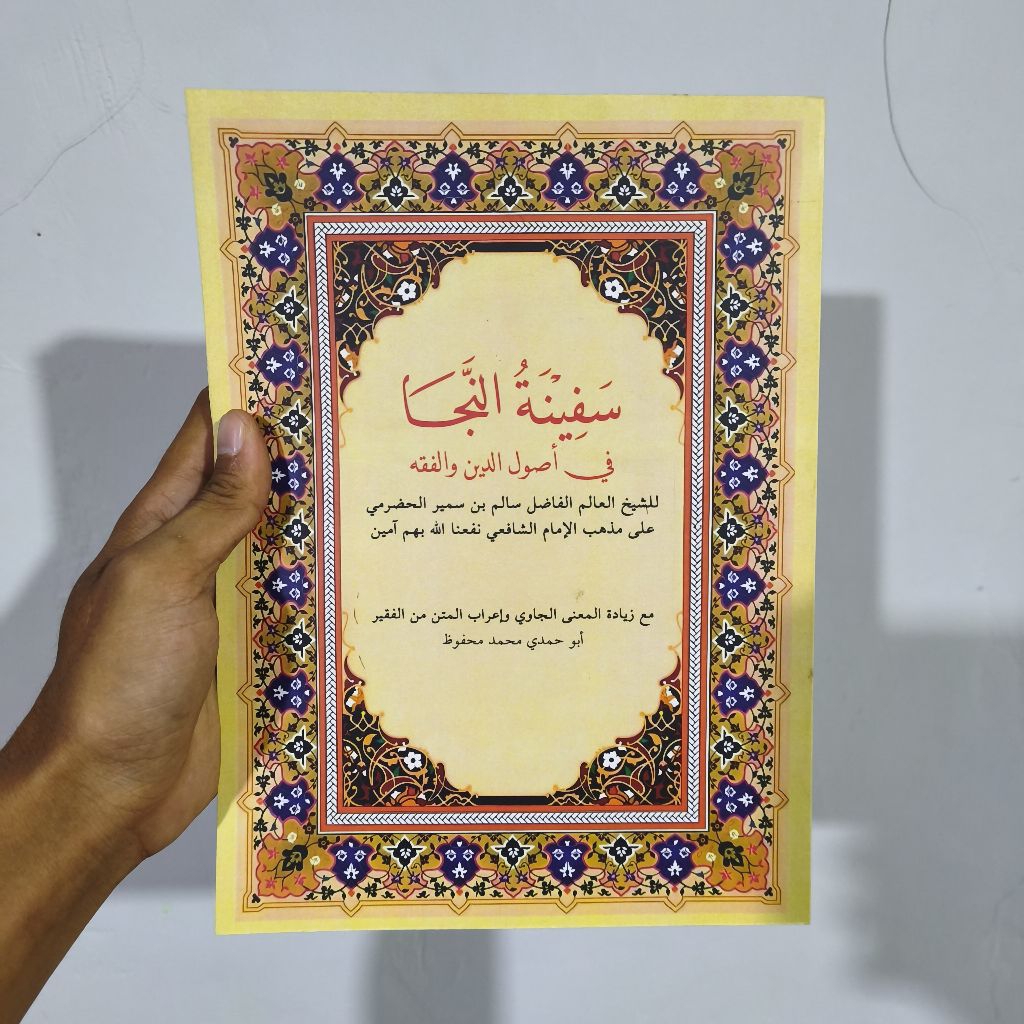 سَفِيْنَةُ النَّجَا
في أصول الدين والفقه
للشيخ العالم الفاضل سالم بن سمير الحضرمي
على مذهب الإمام الشافعي نفعنا الله بهم آمين
مع زيادة المعنى الجاوي وإعراب المتن من الفقير
أبو حمدي محمد محفوظ